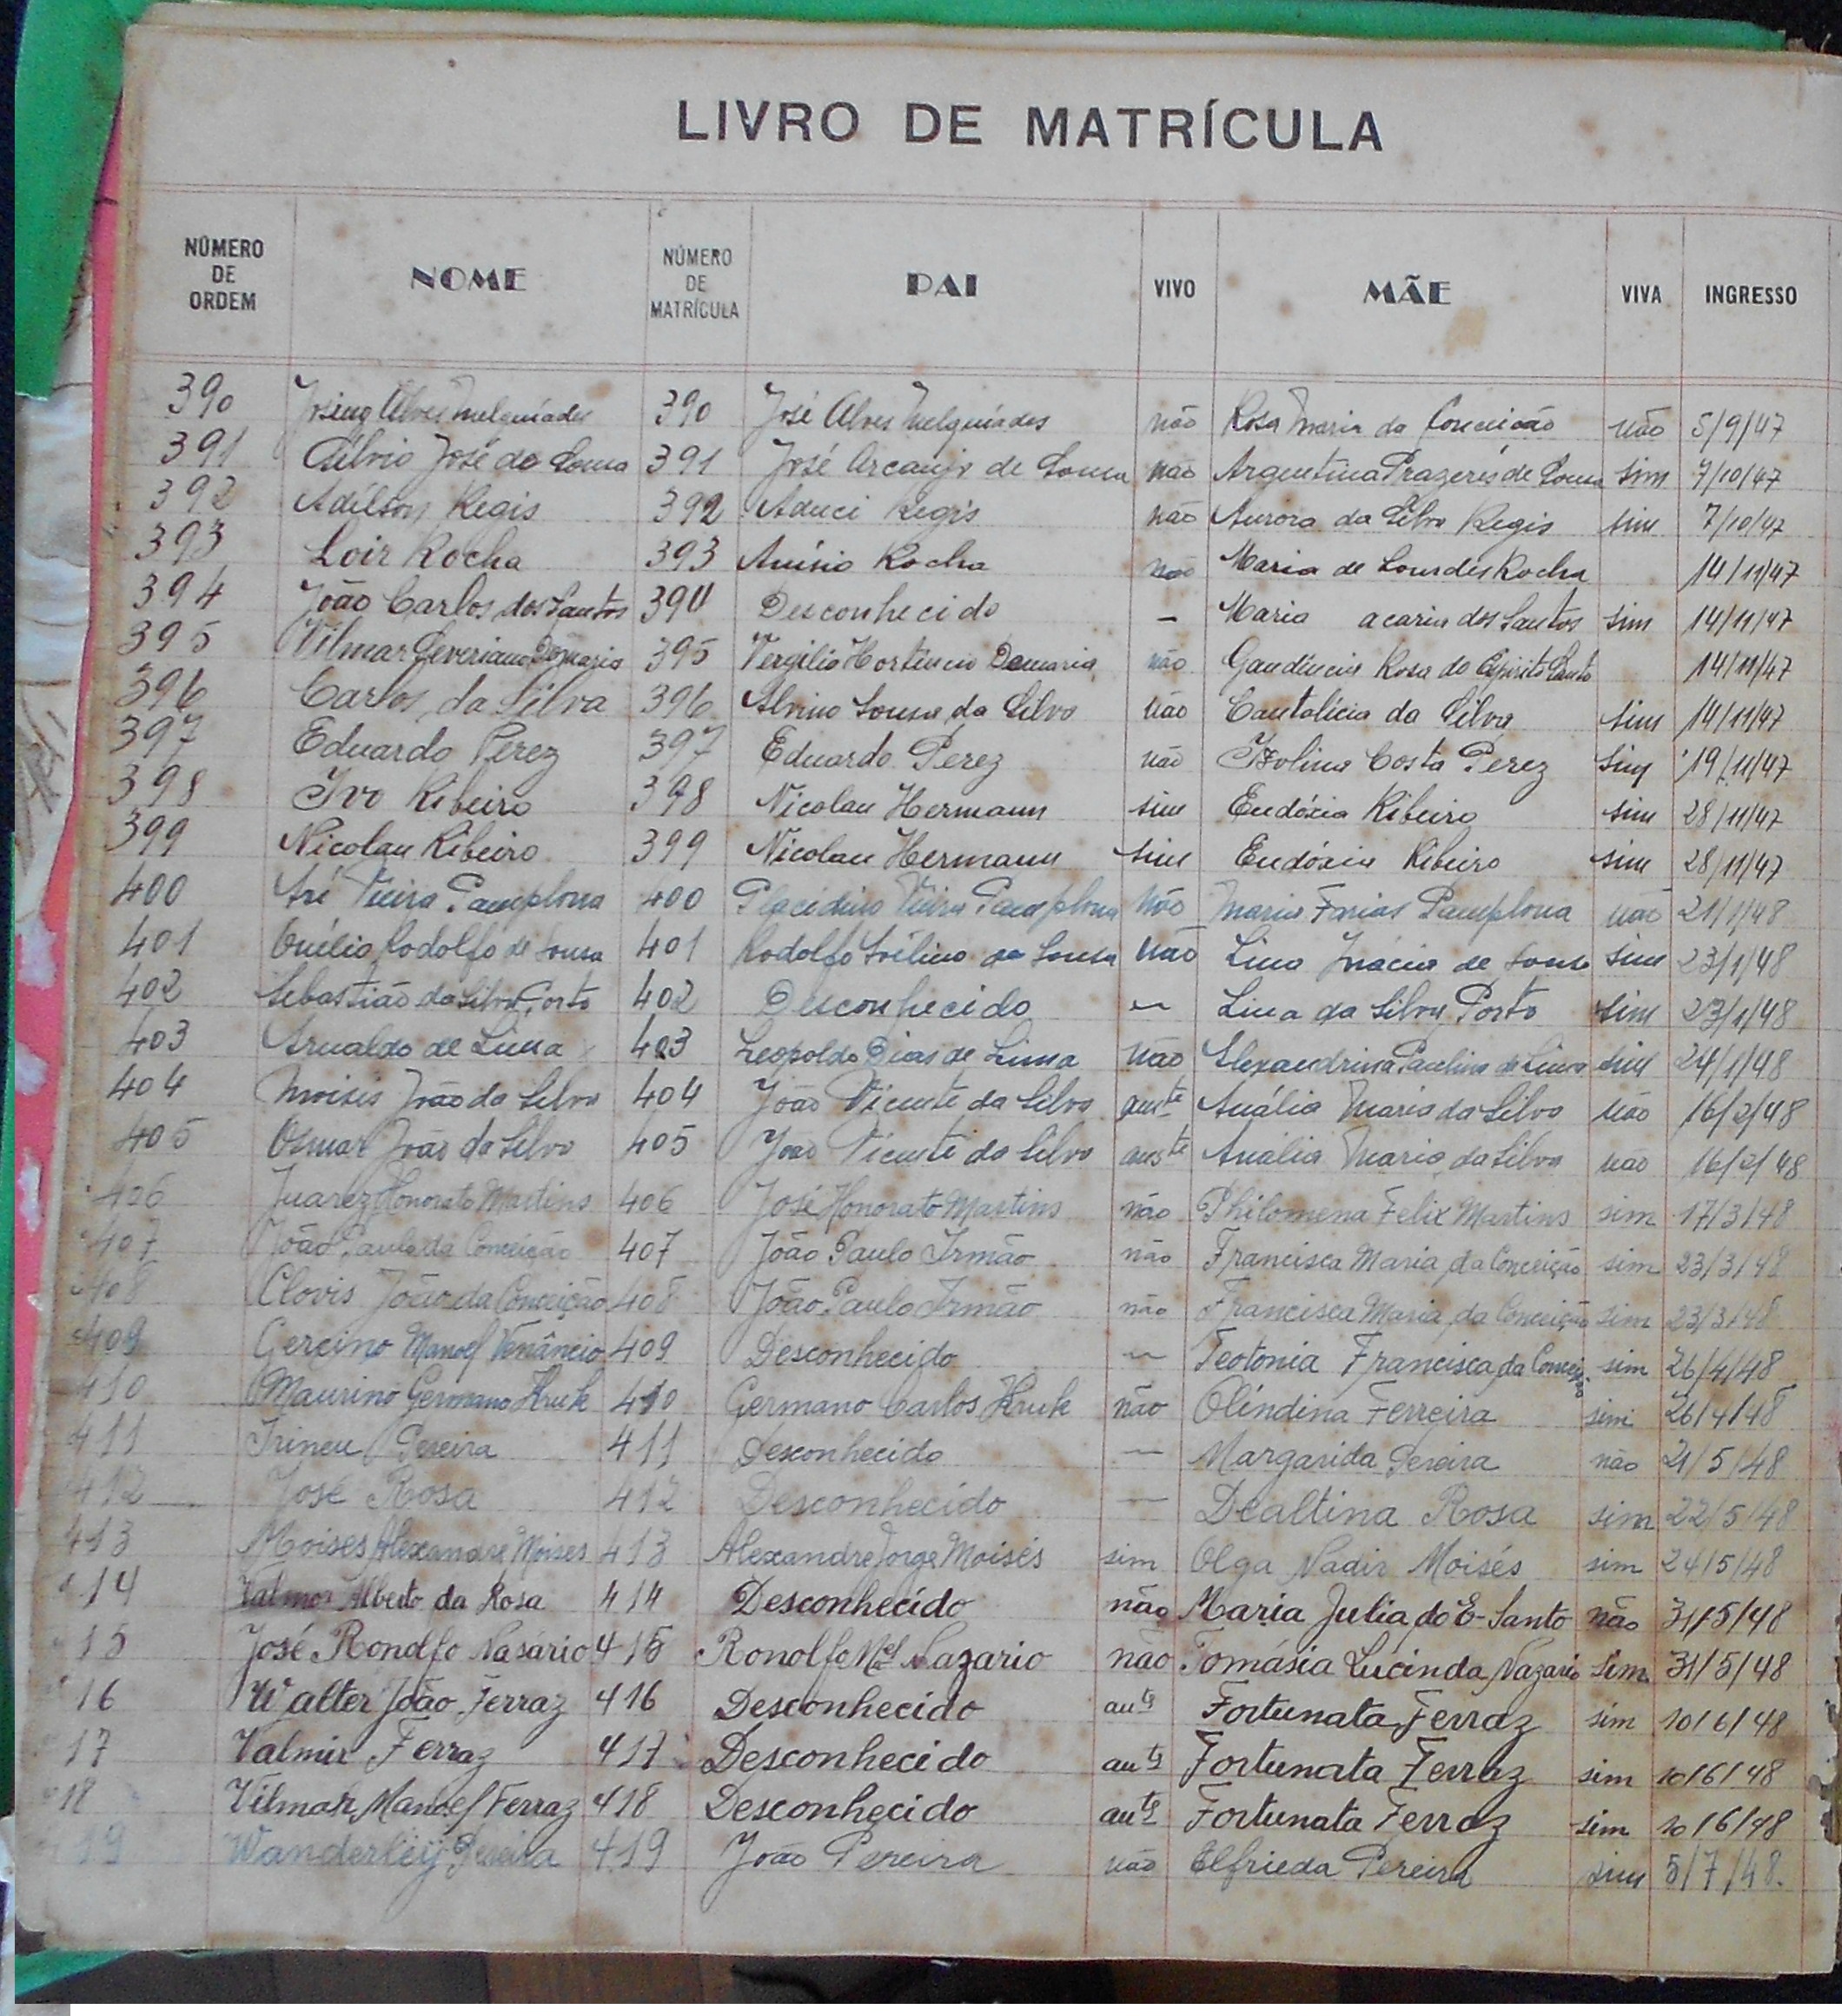 LIVRO DE MATRÍCULA
NÚMERO DE ORDEM NOME NÚMERO DE MATRÍCULA PAI VIVO MÃE VIVA INGRESSO
390 Alves Melquíades 390 José Alves Melquíades não Rosa Maria da Conceição não 5/9/47
391 Sílvio José de Sousa 391 José Arcanjo de Sousa não Argentina Prazeres de Sousa sim 7/10/47
392 Adílson Regis 392 Aduci Regis não Aurora da Silva Regis sim 7/10/47
393 Loir Rocha 393 Anísio Rocha não Maria de Lourdes Rocha 14/11/47
394 João Carlos dos Santos 394 Desconhecido – Maria acaria dos Santos sim 14/11/47
395 Vilmar Severiano Demaria 395 Vergilio Hortêncio Demaria não Gaudência Rosa do Espirito Santo 14/11/47
396 Carlos da Silva 396 Alvino Sousa da Silva não Cantalícia da Silva sim 14/11/47
397 Eduardo Perez 397 Eduardo Perez não Izolina Costa Perez sim 19/11/47
398 Ivo Ribeiro 398 Nicolau Hermann sim Eudóxia Ribeiro sim 28/11/47
399 Nicolau Ribeiro 399 Nicolau Hermann sim Eudóxia Ribeiro sim 28/11/47
400 Ari Vieira Pamplona 400 Placidino Vieira Pamplona não Maria Farias Pamplona não 21/1/48
401 Rodolfo de Sousa 401 Rodolfo de Sousa não Lina Inácia de Sousa sim 23/1/48
402 Sebastião da Silva Porto 402 Desconhecido – Lina da Silva Porto sim 23/1/48
403 Arnaldo de Lima 403 Leopoldo Dias de Lima não Alexandrina Paulina de Lima sim 24/1/48
404 Moisés João da Silva 404 João Vicente da Silva auste Anália Maria da Silva não 16/2/48
405 Osmar João da Silva 405 João Vicente da Silva auste Anália Maria da Silva não 16/2/48
406 Juarez Honorato Martins 406 José Honorato Martins não Philomena Felix Martins sim 17/3/48
407 João Paulo da Conceição 407 João Paulo Irmão não Francisca Maria da Conceição sim 23/3/48
408 Clovis João da Conceição 408 João Paulo Irmão não Francisca Maria da Conceição sim 23/3/48
409 Gercino Manoel Venâncio 409 Desconhecido – Teotonia Francisca da Conceição sim 26/4/48
410 Maurino Germano Kruk 410 Germano Carlos Kruk não Olíndina Ferreira sim 26/4/48
411 Irineu Pereira 411 Desconhecido – Margarida Pereira não 21/5/48
412 José Rosa 412 Desconhecido – Dealtina Rosa sim 22/5/48
413 Moises Alexandre Moises 413 Alexandre Jorge Moisés sim Olga Nadir Moisés sim 24/5/48
14 Valmor Alberto da Rosa 414 Desconhecido não Maria Julia do E-Santo não 31/5/48
15 José Ronolfo Nasário 415 Ronolfo Mel Nazario não Tomásia Lucinda Nazario sim 31/5/48
16 Walter João Ferraz 416 Desconhecido aute Fortunata Ferraz sim 10/6/48
17 Valmir Ferraz 417 Desconhecido aute Fortunata Ferraz sim 10/6/48
18 Vilmar Manoel Ferraz 418 Desconhecido aute Fortunata Ferraz sim 10/6/48
19 Wanderley Pereira 419 João Pereira não Elfrieda Pereira sim 5/7/48.